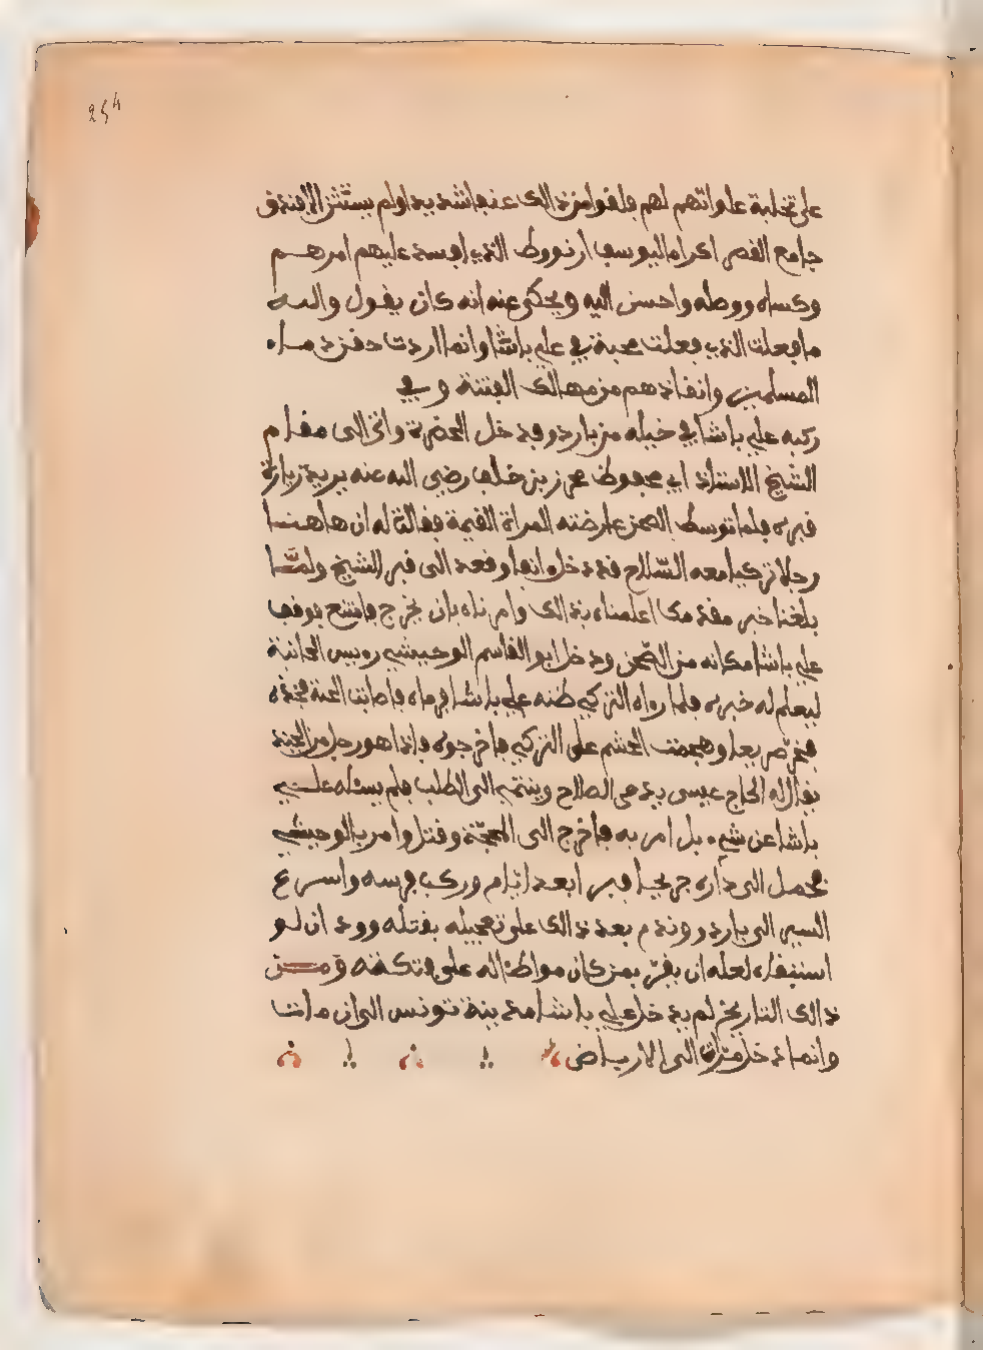 254
على تخلية علواتهم لهم فلقوا من ذالك عذابا شديدا ولم يستثن الا فندق
جامع القصر اكراما ليوسف ارنووط الذي افسد عليهم امرهم
وكساه ووطه واحسن اليه ويحكى عنه انه كان يقول والله
ما فعلت الذي فعلت محبة في علي باشا وانما اردت حقن دماء
المسلمين وانقاذهم من مهالك الفتنة وفي
ركبه علي باشا في خيله من باردو فدخل الحضرة واتى الى مقام
الشيخ الاستاذ ابي محفوظ محرز بن خلف رضي الله عنه يريد زيارة
قبره فلما توسط الصحن عارضته المراة القيمة فقالت له ان هاهنا
رجلا تركيا معه السلاح قد دخل انفا وقعد الى قبر الشيخ ولما
بلغنا خبر مقدمكا اعلمناه بذالك وامرناه بان يخرج فامتنع فوقف
علي باشا مكانه من الصحن ودخل ابو القاسم الوحيشي رويس الحانبة
ليعلم له خبره فلما رواه التركي ظنه علي باشا فرماه فاصابت الحنة فخذه
فخر صريعا وهجمت الحشم على التركي فاخرجوه فاذا هو رجل من الجند
يقال له الحاج عيسى يدعى الصلاح وينتمي الى الطلب فلم يسئله علي
باشا عن شيء بل امر به فاخرج الى المحجة وقتل وامر بالوحيشي
فحمل الى داره جريحا فبرا بعد ايام وركب فرسه واسرع
السير الى باردو وندم بعد ذالك على تعجيله بقتله وود ان لو
استبقاه لعله ان يقر بمن كان مواطئا له على فتكته ومن
ذالك التاريخ لم يدخل علي باشا مدينة تونس الى ان مات
وانما دخل مرات الى الارباض